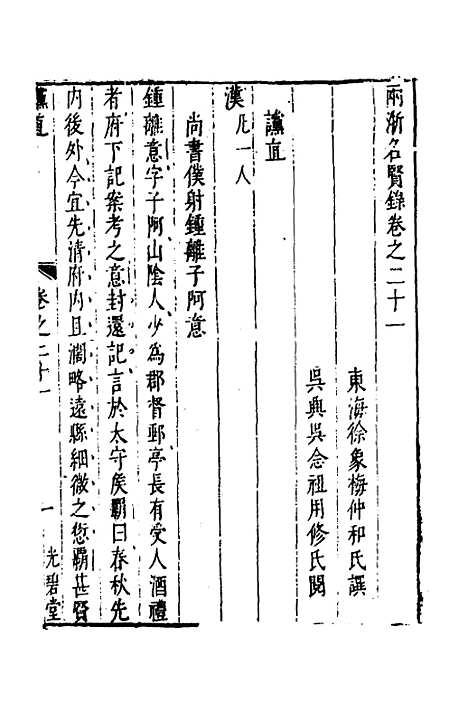 兩浙名賢錄卷之二十一
東海徐象梅仲和氏譔
吳興吳念祖用修氏閱
讜直
漢凡一人
尚書僕射鍾離子阿意
鍾離意字子阿山陰人少為郡督郵亭長有受人酒禮
者府下記案考之意封還記言於太守矦霸曰春秋先
內後外今宜先清府內且濶略遠縣細微之愆霸甚賢
讜直
卷之二十一
一
光碧堂